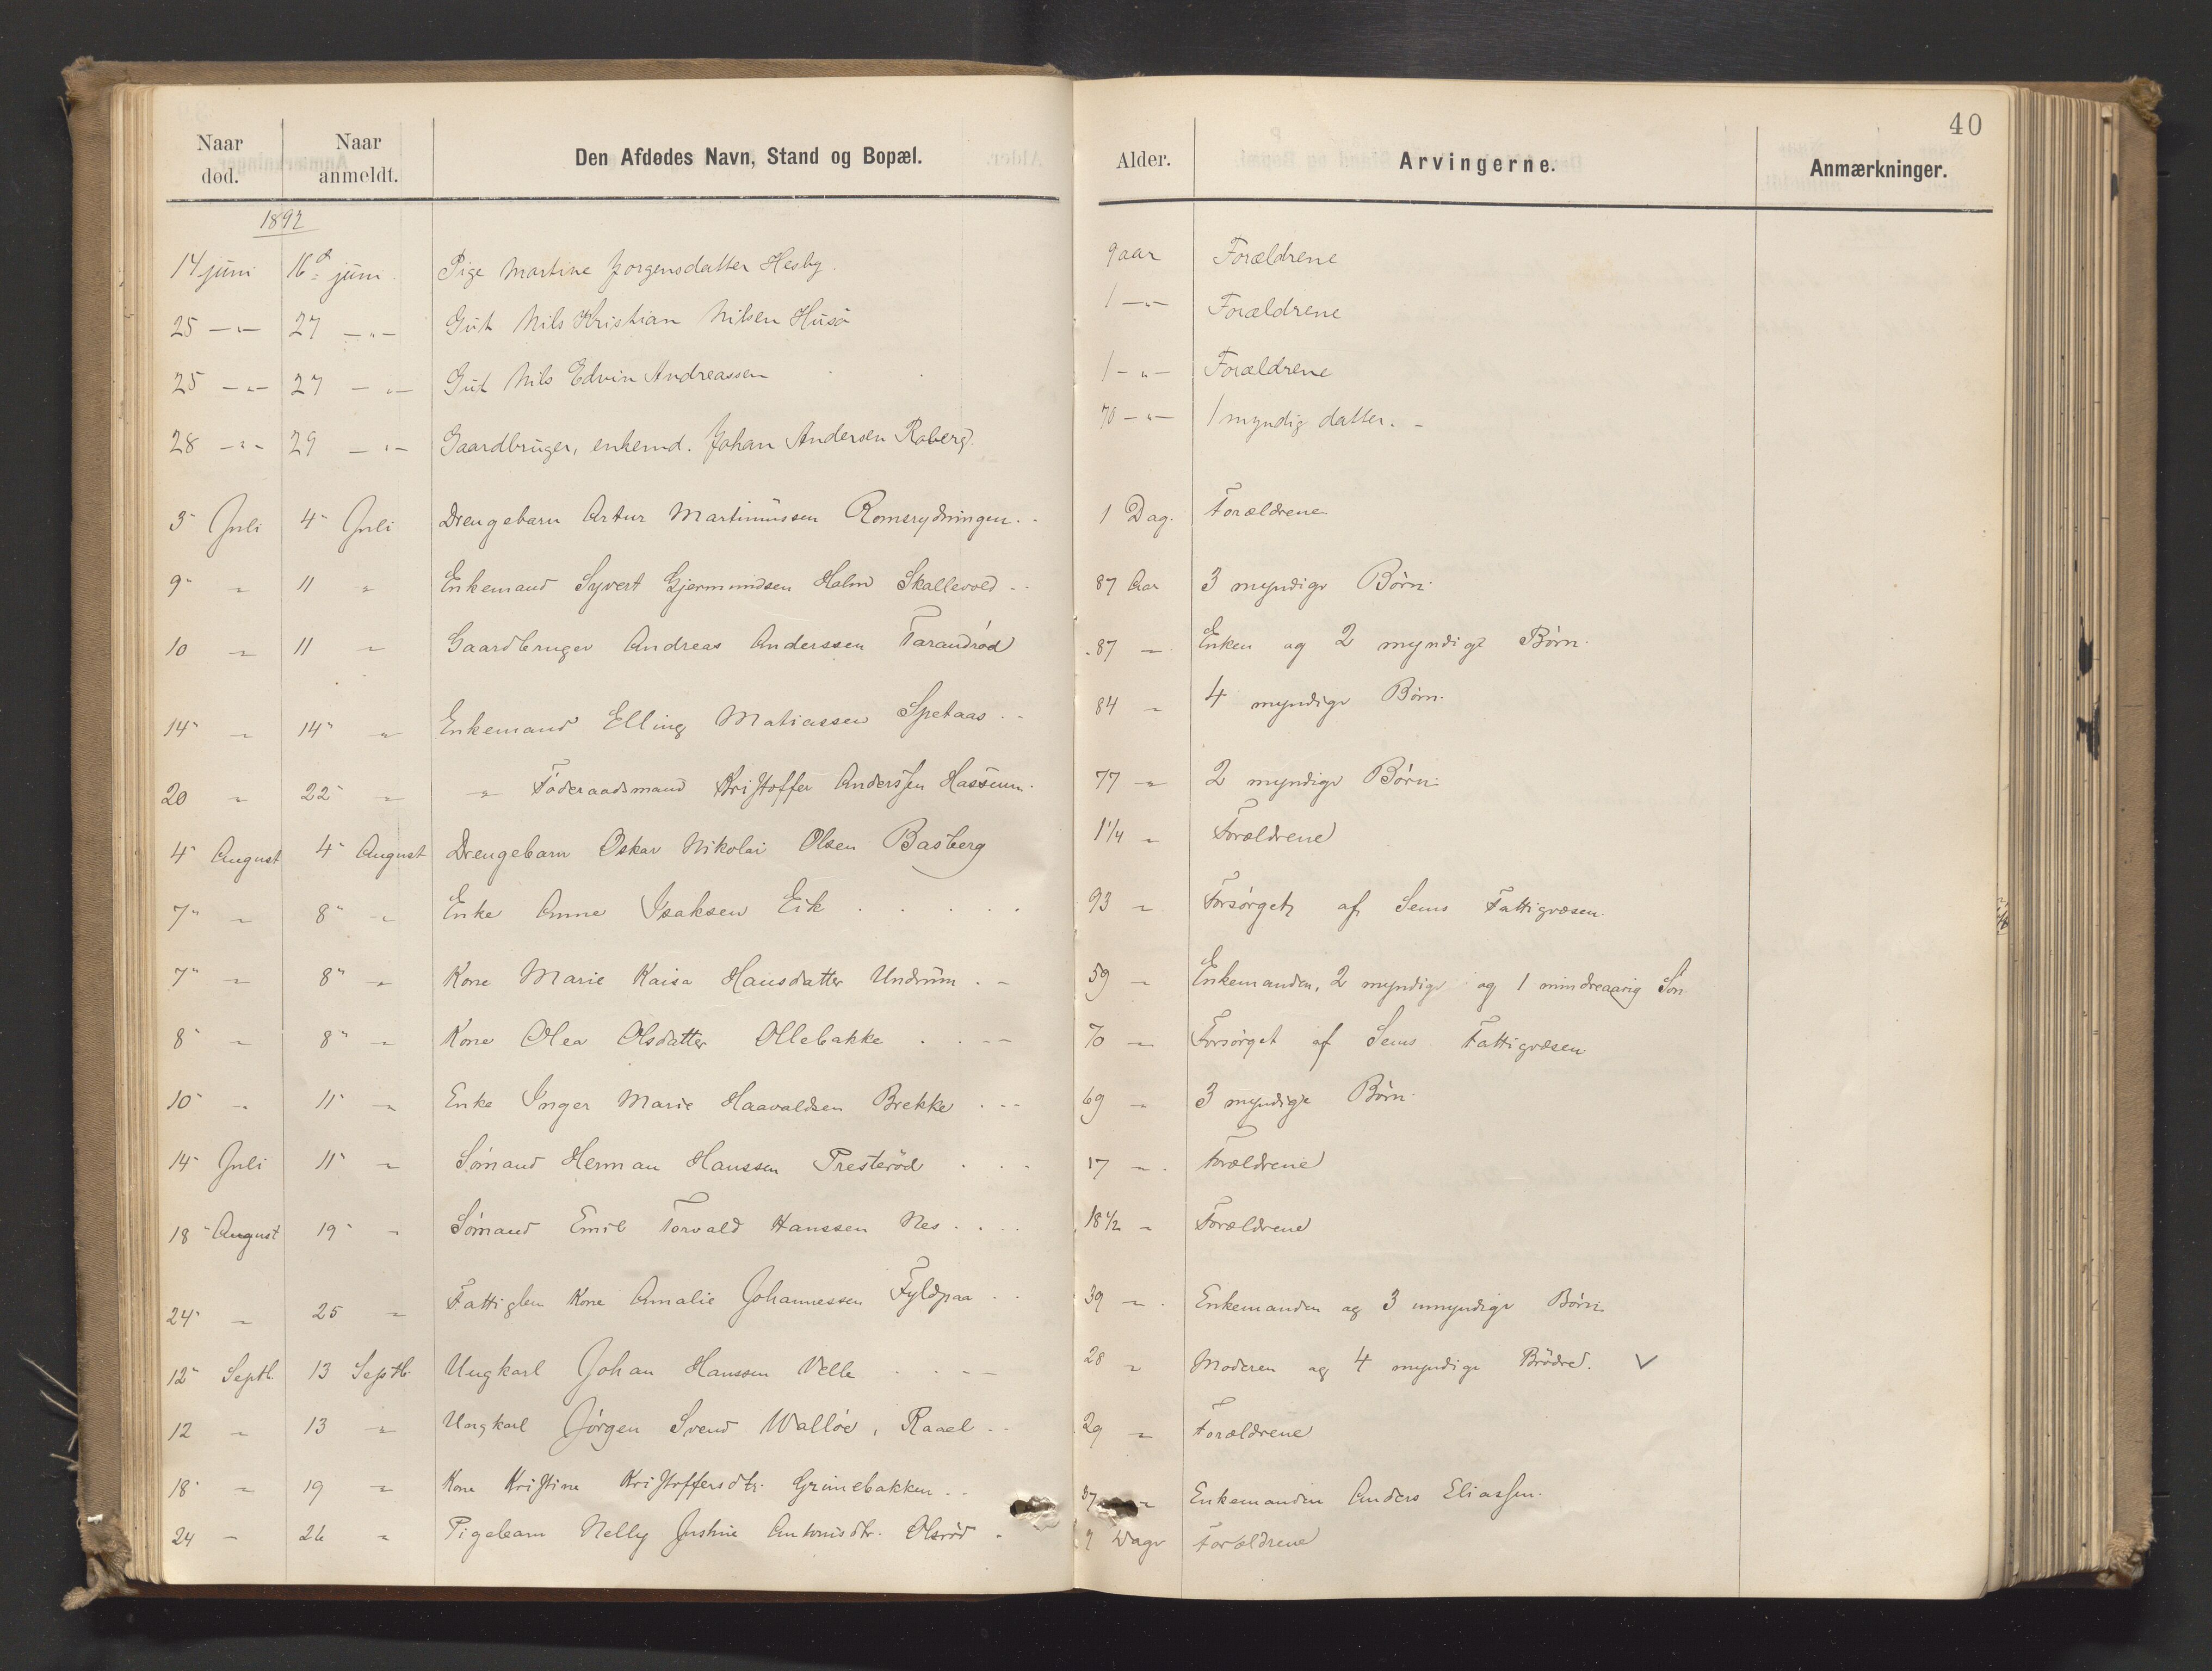 40
Naar død. Naar anmeldt. Den Afdødes Navn, Stand og Bopæl. Alder. Arvingerne. Anmærkninger.
1892
14 juni 16d juni Pige Martine Jorgensdatter Hesby. 9 aar Forældrene
25 —"— 27 —"— Gut Nils Kristian Nilsen Husö 1 —"— Forældrene
25 —"— 27 —"— Gut Nils Edvin Andreassen 1 —"— Forældrene
28 —"— 29 —"— Gaardbruger, enkemd. Johan Andersen Roberg. 70 —"— 1 myndig datter. -
3 Juli 4 Juli Drengebarn Artur Martinussen Romsrydningen. 1 Dag. Forældrene
9 " 11 " Enkemand Syvert Gjermundsen Holm Skallevold 87 Aar 3 myndige Børn.
10 " 11 " Gaardbruger Andreas Anderssen Tarandrød 87 " Enken og 2 myndige Børn.
14 " 14 " Enkemand Elling Matiassen Spetaas 84 " 4 myndige Børn.
20 " 22 " " Föderaadsmand Kristoffer Anderssen Hassum. 77 " 2 myndige Børn.
4 August 4 August Drengebarn Oskar Nikolai Olsen Basberg 1 1/4 " Forældrene
7 " 8 " Enke Anne Isaksen Eik 93 " Forsørget af Sems Fattigvæsen.
7 " 8 " Kone Marie Kaisa Hansdatter Undrum 59 " Enkemanden, 2 myndige og 1 mindreaarig Søn.
8 " 8 " Kone Olea Olsdatter Ollebakke 70 " Forsørget af Sems Fattigvæsen
10 " 11 " Enke Inger Marie Haavaldsen Brekke 69 " 3 myndige Børn.
14 Juli 11 " Sømand Herman Hanssen Presterød 17 " Forældrene
18 August 19 " Sømand Emil Torvald Hanssen Nes 18 1/2 " Forældrene
24 " 25 " Fattiglem Kone Amalie Johannessen Fyldpaa 39 " Enkemanden og 3 umyndige Børn
12 Septb. 13 Septb. Ungkarl Johan Hanssen Velle 28 " Moderen og 4 myndige Brödre. ✓
12 " 13 " Ungkarl Jörgen Svend Walløe, Raael 29 " Forældrene
18 " 19 " Kone Kristine Kristoffersdtr. Grimebakken 37 " Enkemanden Anders Eliassen.
24 " 26 " Pigebarn Nelly Justine Antonisdtr. Olsröd 9 Dage Forældrene